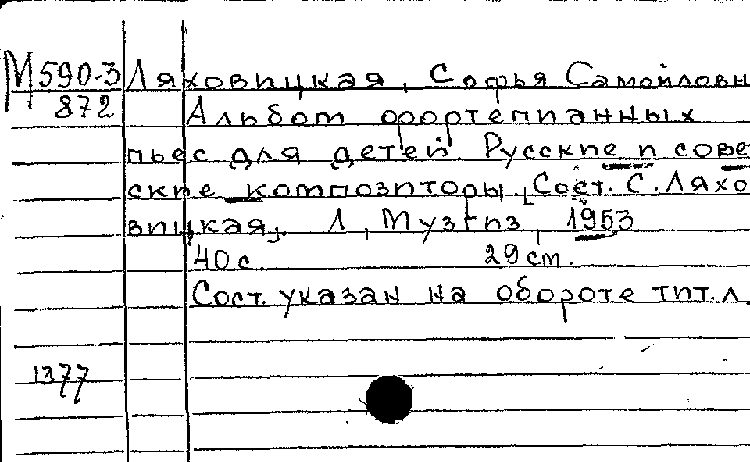 М590-3 Ляховицкая, Софья Самойловн
872 Альбом фортепианных
пьес для детей. Русские и сове
ские композиторы. [Сост. С. Ляхо
вицкая]. Л., Музгиз, 1953
40 с. 29 см.
Сост. указан на обороте тит. л.
1377